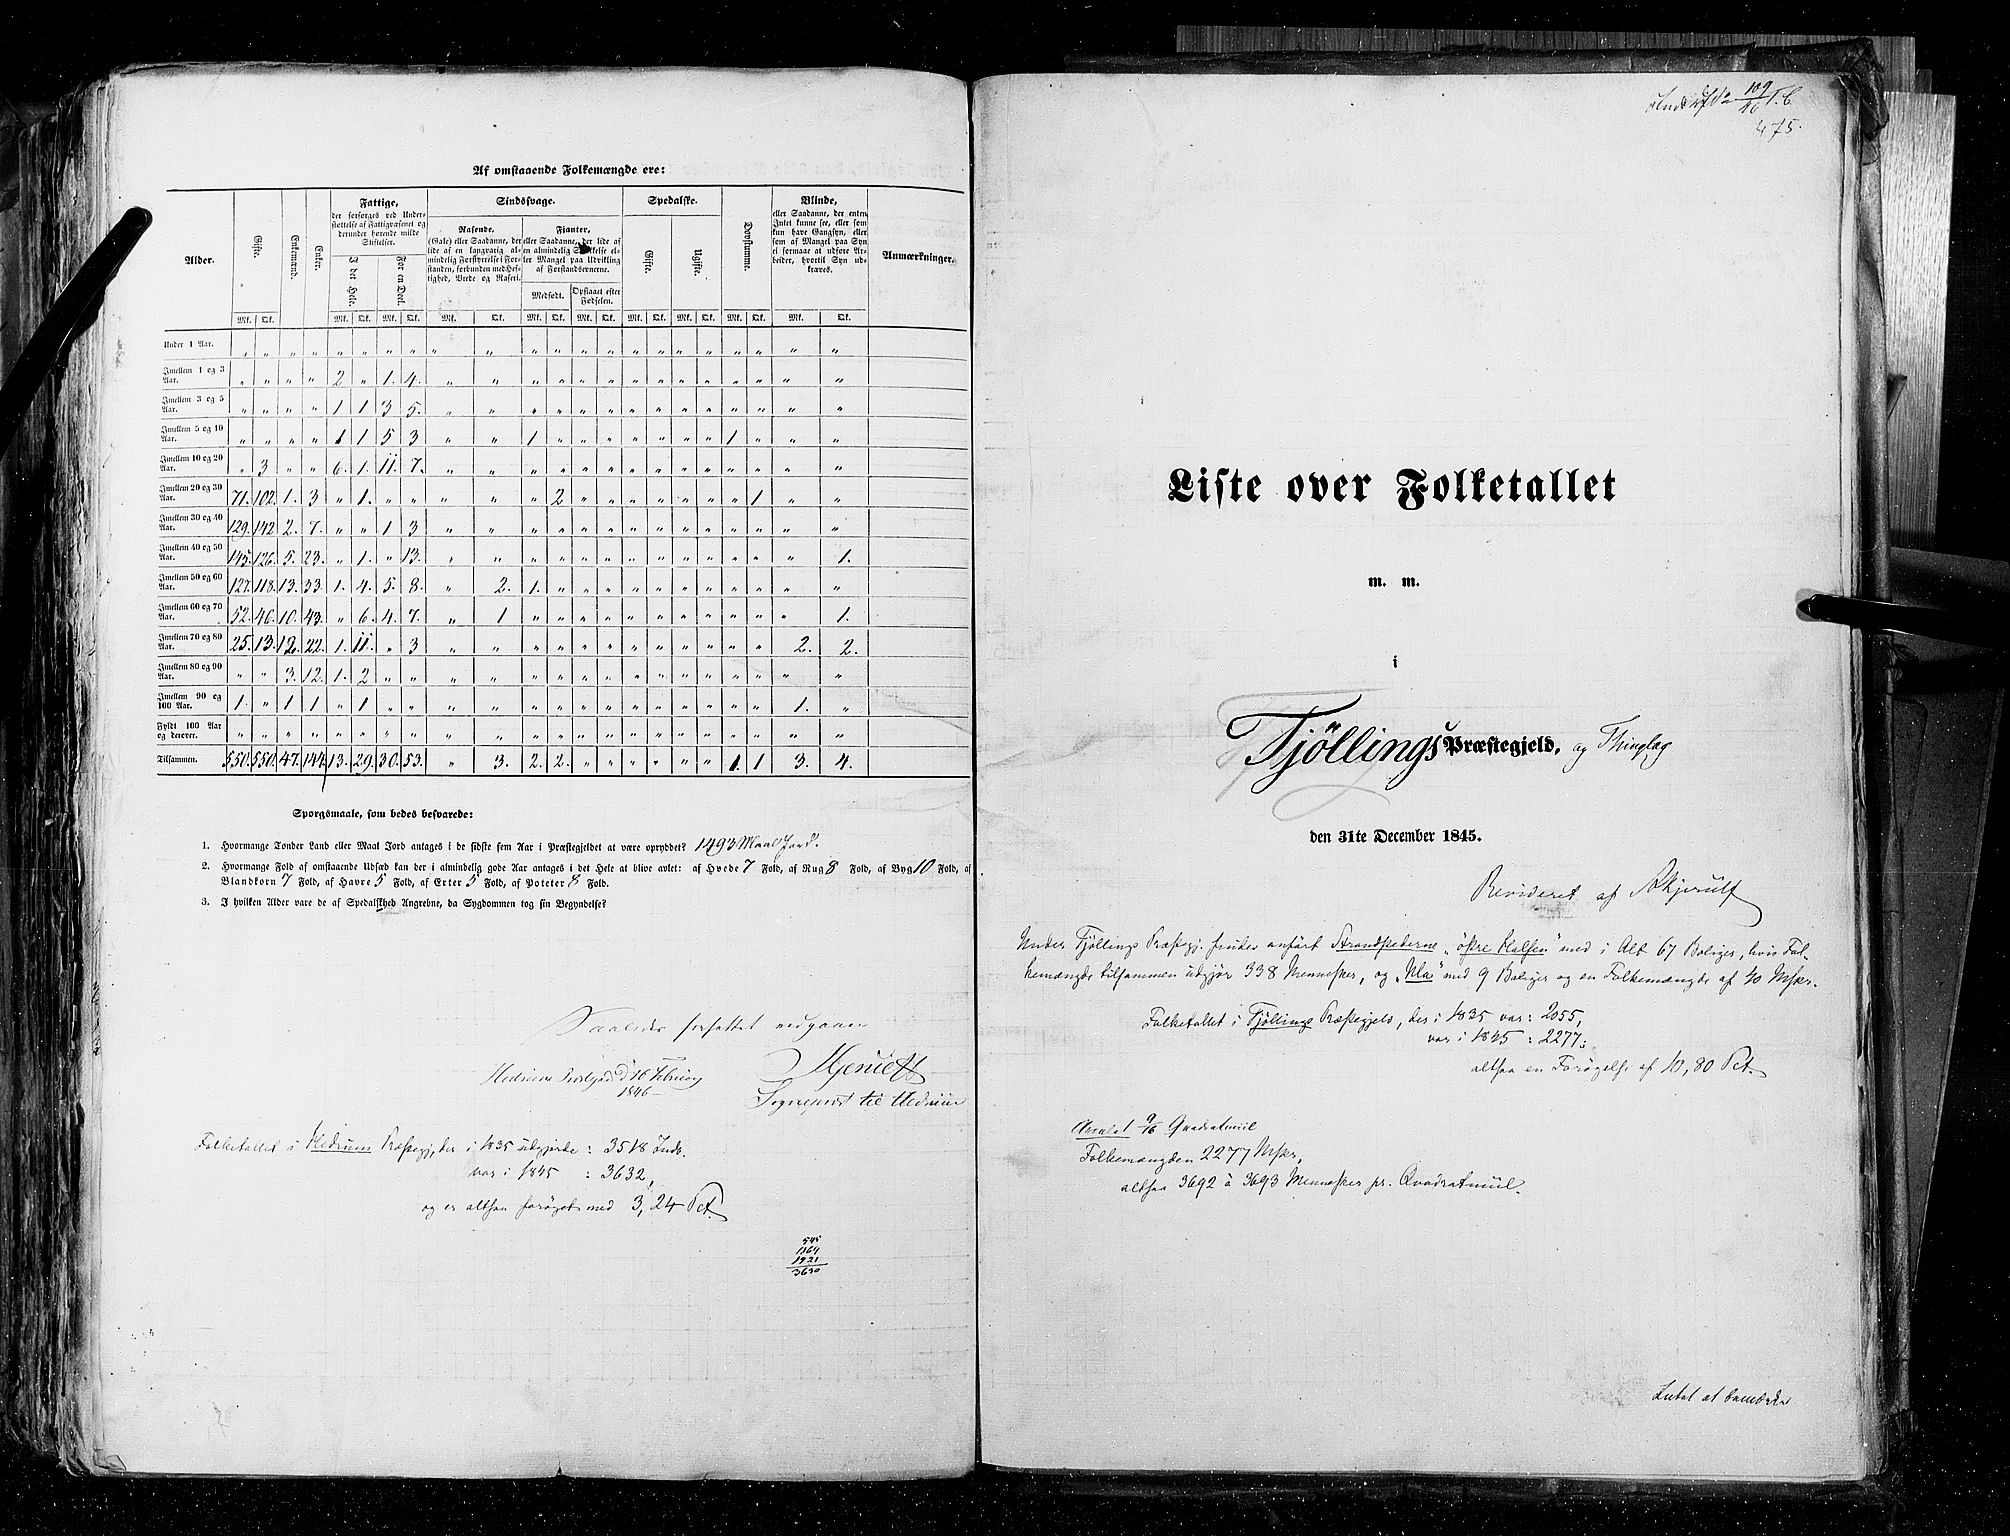 Af omstaaende Folkemængde ere:
Alder. | Gifte. | Enkemænd. | Enker. | Fattige, der forsørges ved Understøttelse af Fattigvæsenet og derunder hørende milde Stiftelser. | Sindssvage. | Spedalske. | Døvstumme. | Blinde, eller Saadanne, der enten Intet kunne see, eller som kun have Gangsyn, eller som af Mangel paa Syn ei formaae at udføre Arbeider, hvortil Syn udkræves. | Anmærkninger.
I det Hele. | For en Deel. | Rasende, (Gale) eller Saadanne, der lide af en langvarig almindelig Forstyrrelse i Forstanden, forbunden med Heftighed, Vrede og Raseri. | Fianter, eller Saadanne, der lide af en almindelig Svækkelse eller Mangel paa Udvikling af Forstandsevnerne. | Gifte. | Ugifte.
Medfødt. | Opstaaet efter Fødselen.
Mk. | Qk. | Mk. | Qk. | Mk. | Qk. | Mk. | Qk. | Mk. | Qk. | Mk. | Qk. | Mk. | Qk. | Mk. | Qk. | Mk. | Qk. | Mk. | Qk.
Under 1 Aar. | „ | „ | „ | „ | „ | „ | „ | „ | „ | „ | „ | „ | „ | „ | „ | „ | „ | „ | „ | „ | „ | „
Imellem 1 og 3 Aar. | „ | „ | „ | „ | 2 | „ | 1. | 4. | „ | „ | „ | „ | „ | „ | „ | „ | „ | „ | „ | „ | „ | „
Imellem 3 og 5 Aar. | „ | „ | „ | „ | 1 | 1 | 3 | 5. | „ | „ | „ | „ | „ | „ | „ | „ | „ | „ | „ | „ | „ | „
Imellem 5 og 10 Aar. | „ | „ | „ | „ | 1 | 1 | 5 | 3 | „ | „ | 1 | „ | „ | „ | „ | „ | „ | „ | 1 | „ | „ | „
Imellem 10 og 20 Aar. | „ | 3 | „ | „ | 6. | 1. | 11. | 7. | „ | „ | „ | „ | „ | „ | „ | „ | „ | „ | „ | „ | „ | „
Imellem 20 og 30 Aar. | 71. | 102. | 1. | 3 | „ | 1. | „ | „ | „ | „ | „ | 2 | „ | „ | „ | „ | „ | „ | „ | 1 | „ | „
Imellem 30 og 40 Aar. | 129. | 142 | 2. | 7. | „ | „ | 1 | 3 | „ | „ | „ | „ | „ | „ | „ | „ | „ | „ | „ | „ | „ | „
Imellem 40 og 50 Aar. | 145. | 126. | 5. | 23. | „ | 1. | „ | 13. | „ | „ | „ | „ | „ | „ | „ | „ | „ | „ | „ | „ | „ | 1.
Imellem 50 og 60 Aar. | 127. | 118. | 13. | 33. | 1. | 4. | 5. | 8. | „ | 2. | 1. | „ | „ | „ | „ | „ | „ | „ | „ | „ | „ | „
Imellem 60 og 70 Aar. | 52. | 46. | 10. | 43. | „ | 6. | 4. | 7. | „ | 1 | „ | „ | „ | „ | „ | „ | „ | „ | „ | „ | „ | 1.
Imellem 70 og 80 Aar. | 25. | 13. | 12. | 22. | 1. | 11. | „ | 3 | „ | „ | „ | „ | „ | „ | „ | „ | „ | „ | „ | „ | 2. | 2.
Imellem 80 og 90 Aar. | „ | „ | 3. | 12. | 1. | 2 | „ | „ | „ | „ | „ | „ | „ | „ | „ | „ | „ | „ | „ | „ | „ | „
Imellem 90 og 100 Aar. | 1. | „ | 1 | 1 | „ | 1 | „ | „ | „ | „ | „ | „ | „ | „ | „ | „ | „ | „ | „ | „ | 1. | „
Fyldt 100 Aar og derover. | „ | „ | „ | „ | „ | „ | „ | „ | „ | „ | „ | „ | „ | „ | „ | „ | „ | „ | „ | „ | „ | „
Tilsammen. | 550. | 550. | 47. | 147 | 13. | 29. | 30. | 53. | „ | 3. | 2. | 2. | „ | „ | „ | „ | „ | „ | 1. | 1 | 3. | 4.
Spørgsmaale, som bedes besvarede:
1. Hvormange Tønder Land eller Maal Jord antages i de sidste fem Aar i Præstegjeldet at være opryddet? 1493 Maal Jord.
2. Hvormange Fold af omstaaende Udsæd kan der i almindelig gode Aar antages i det Hele at blive avlet: af Hvede 7 Fold, af Rug 8 Fold, af Byg 10 Fold, af
Blandkorn 7 Fold, af Havre 5 Fold, af Erter 5 Fold, af Poteter 8 Fold.
3. I hvilken Alder vare de af Spedalskhed Angrebne, da Sygdommen tog sin Begyndelse?
Saaledes forfattet
Hedrums Præstgjeld d 16 Februar
1846
Sognepræst til Hedrum
Folketallet i Hedrums Præstegj, der i 1835 udgjorde : 3518 Indv.
var i 1845 : 3632,
og er altsaa forøget med 3,24 Pct.
545
1164
1921
3630
109
475.
Liste over Folketallet
m. m.
i
Tjøllings Præstegjeld, og Thinglag
den 31te December 1845.
Revideret af AKjerulf
Under Tjøllings Præstegj. findes anført Strandstederne „østre Halsen" med i Alt 67 Boliger, hvis Fol-
kemængde tilsammen udgjør 338 Mennesker, og „Ula" med 9 Boliger og en Folkemængde af 40 Mskr.
Folketallet i Tjøllings Præstegjeld, der i 1835 var : 2055,
var i 1845 : 2277;
altsaa en Forøgelse af 10,80 Pct.
Arealet 9/16 Quadratmiil
Folkemængden 2277 Mskr,
altsaa 3692 à 3693 Mennesker pr. Qvadratmiil.
Intet at bemærke